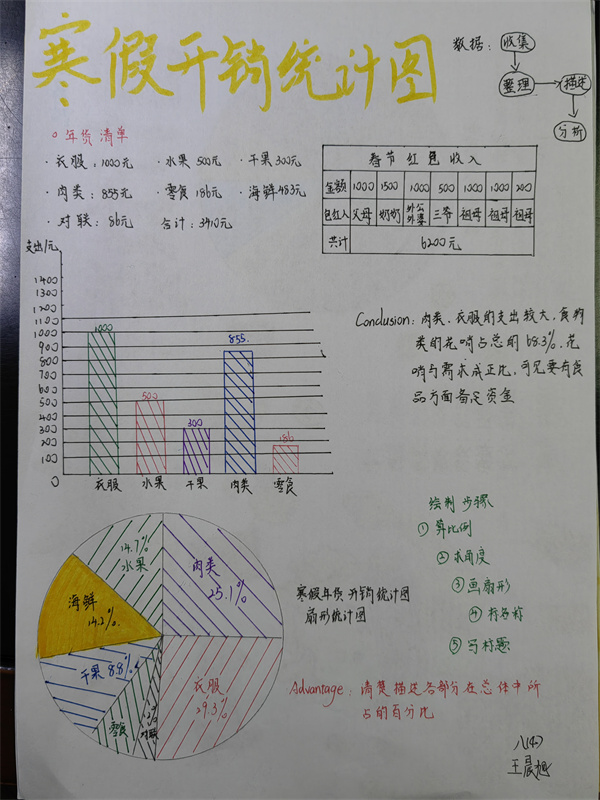 寒假开销统计图
数据：收集
整理
描述
分析
年货清单
·衣服：1000元 ·水果500元 ·干果300元
·肉类：855元 ·零食186元 ·海鲜483元
·对联：86元 合计：3410元
春节红包收入
金额 1000 1500 1000 500 1000 1000 200
包红入 父母 奶奶 外公外婆 三爷 祖母 祖母 祖母
共计 6200元
支出/元
1400
1300
1200
1100
1000
900
800
700
600
500
400
300
200
100
0
1000 500 300 855 186
衣服 水果 干果 肉类 零食
Conclusion：肉类、衣服的支出较大，食物
类的花哨占总的68.3%，花
哨与需求成正比，可见要有食
品方面备足资金
绘制步骤
①算比例
②求角度
③画扇形
④标名称
⑤写标题
14.7%
水果
肉类
25.1%
海鲜
14.2%
干果 8.8%
零食
对联
衣服
29.3%
寒假年货开销统计图
扇形统计图
Advantage：清楚描述各部分在总体中所
占的百分比
八(4)
王晨旭